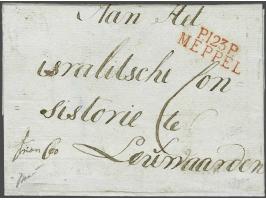 Aan Het
P123P
MEPPEL
israelitsche Con
sistorie te
Leeuwaarden